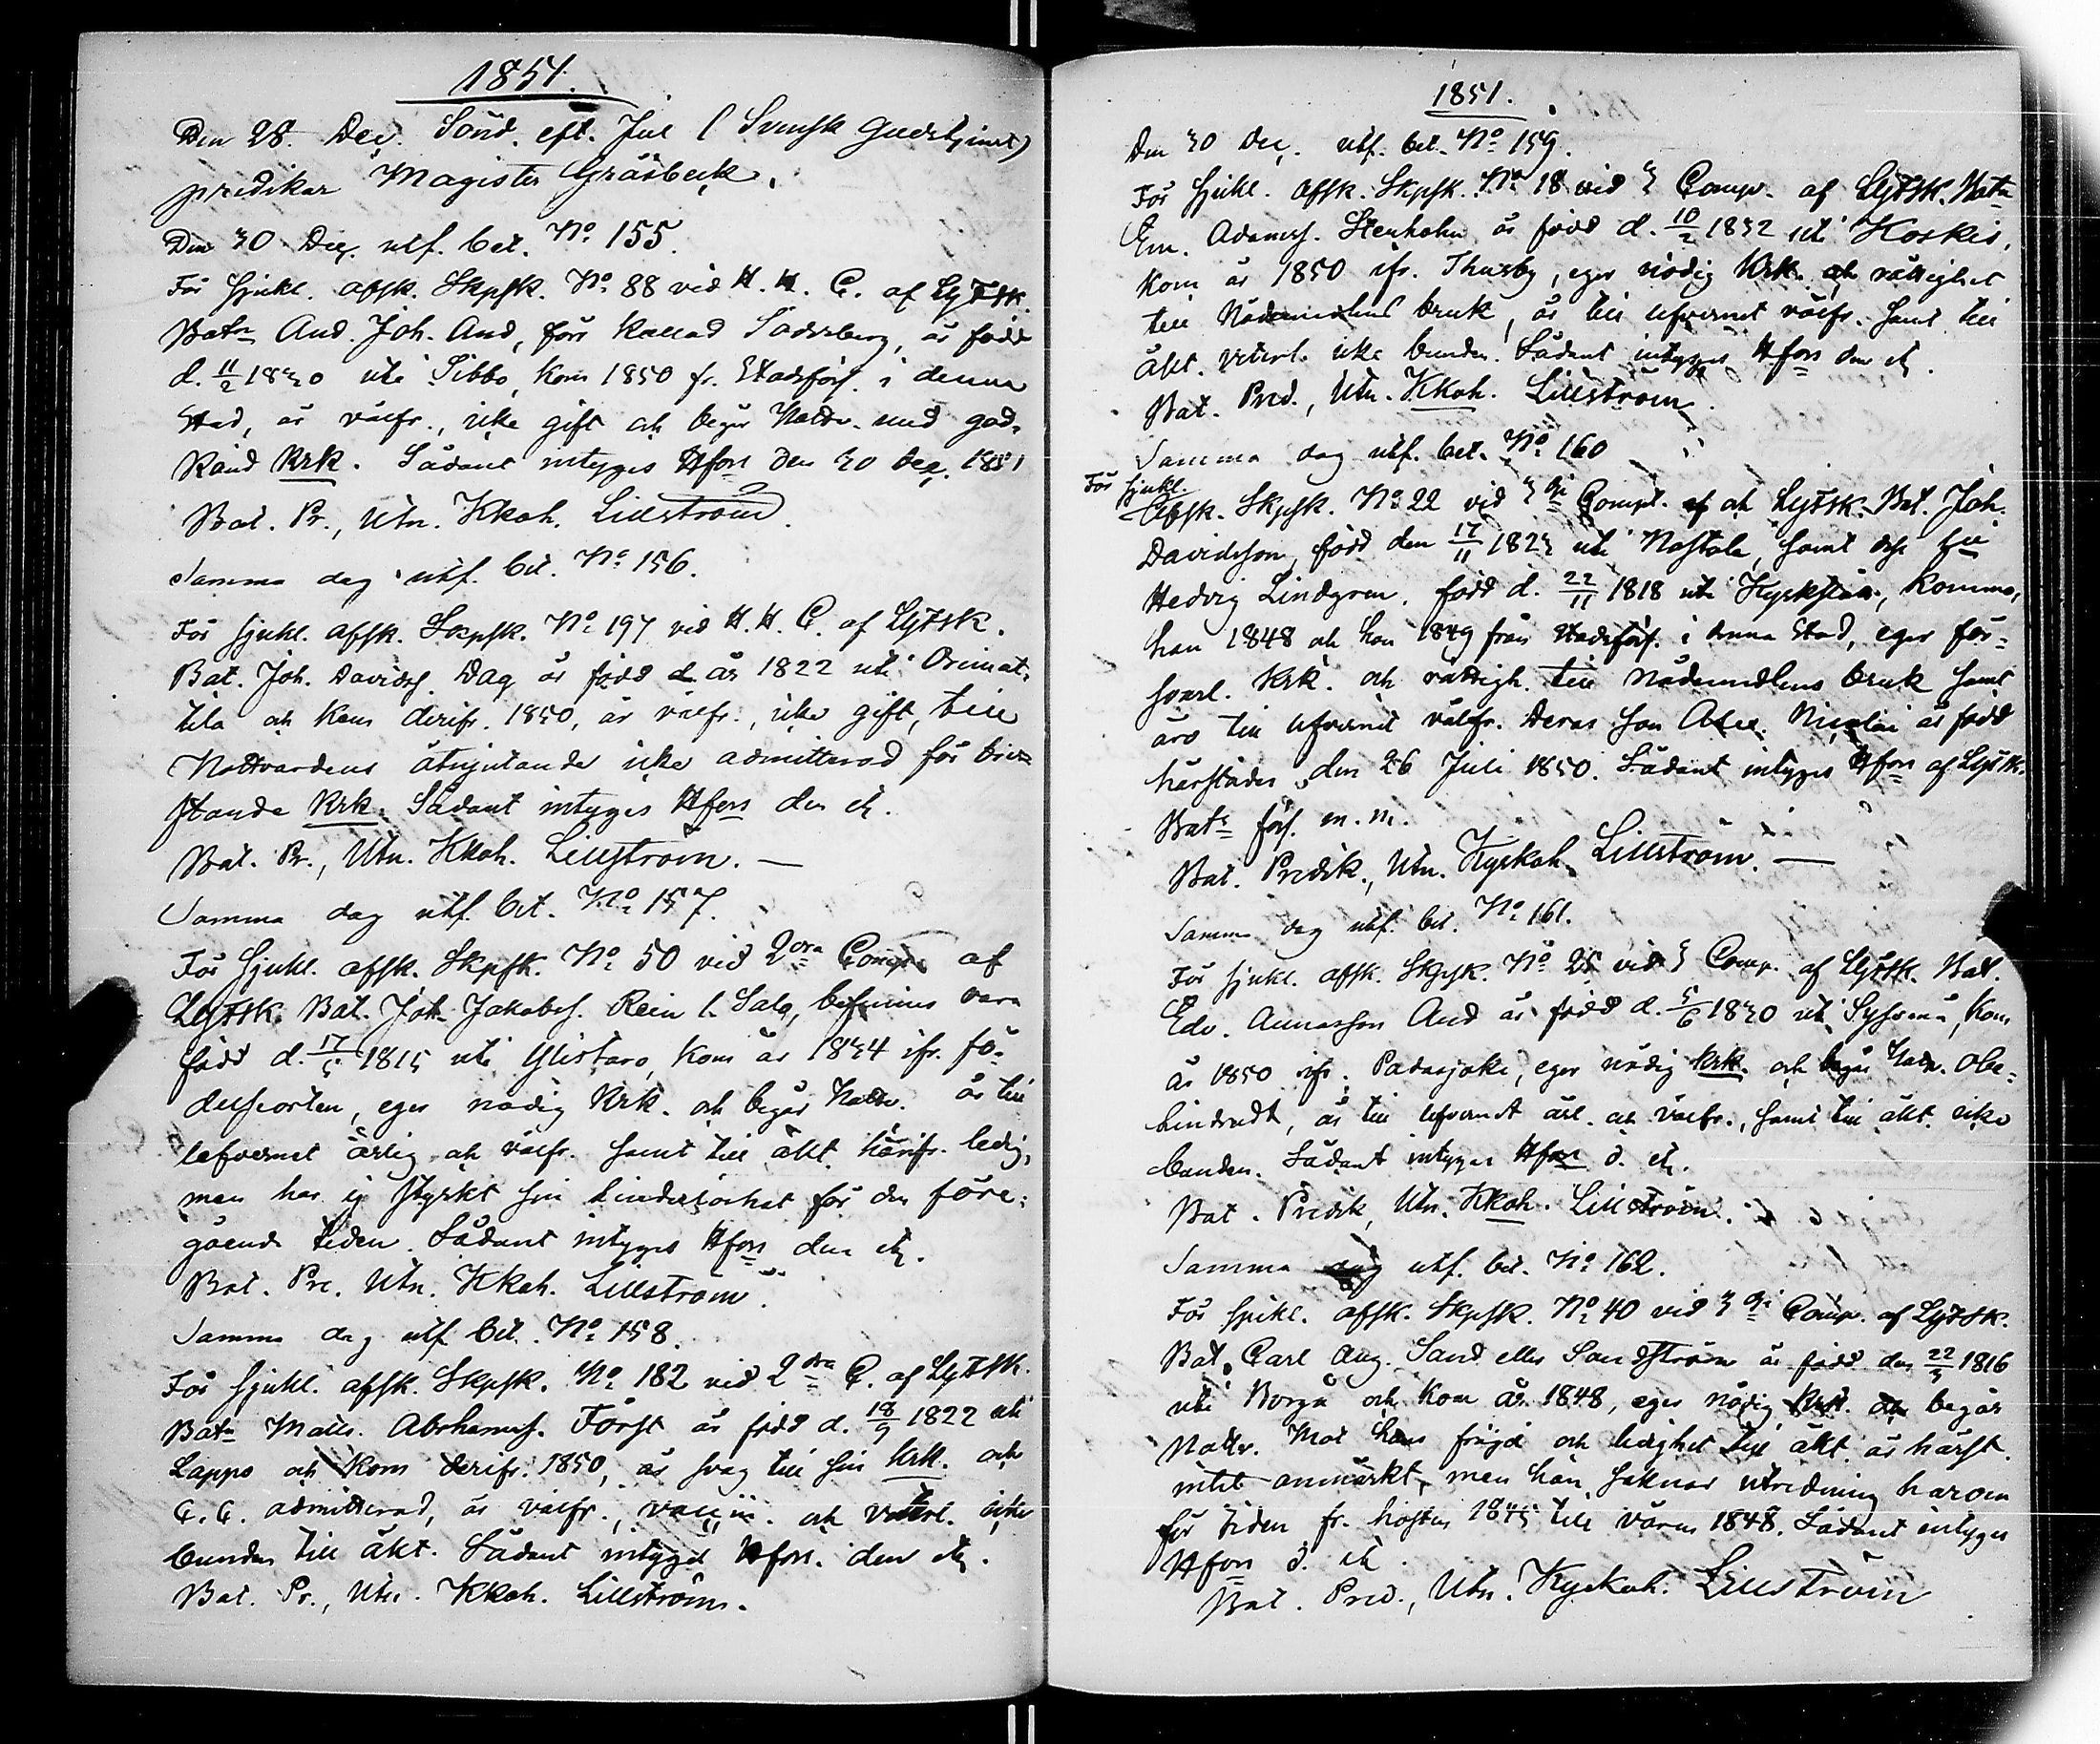 1851.
Den 28. Dec. Sönd. eft. Jul (Svensk Gudstjenst)
predikar Magister Gräsbeck.
Den 30 Dec. utf. bet. No 155.
För sjukl. afsk. Skpsk. No 88 vid H. H. C. af LgFSk.
Batn And. Joh. And, förr kallad Söderberg, är född
d. 11/2 1830 uti Sibbo, kom 1850 fr. Stadsförs. i denna
Stad, är välfr., icke gift och begår Nattv. med god-
känd Krk. Sådant intygas Hfors den 30 Dec. 1851
Bat. Pr., Utn. Kkoh. Lillström.
Samma dag utf. bet. No 156.
För sjukl. afsk. Skpsk. No 197 vid H. H. C. af LgFSk.
Bat. Joh. Davidss. Dag är född år 1822 uti Orimat-
tila och kom derifr. 1850, är välfr., icke gift, till
Nattvardens åtnjutande icke admitterad för bri-
stande Krk. Sådant intygas Hfors den etc.
Bat. Pr., Utn. Kkoh. Lillström. —
Samma dag utf. bet. No 157.
För sjukl. afsk. Skpsk. No 50 vid 2dra Comp. af
LgFSk. Bat. Joh. Jakobss. Rein l. Salo, befinnes vara
född d. 17/5 1815 uti Ylistaro, kom år 1834 ifr. fö-
delseorten, eger nödig Krk. och begår Nattv. är till
lefvernet ärlig och välfr. samt till äkt. härifr. ledig,
men har ej styrkt sin hinderlöshet för den före-
gående tiden. Sådant intygas Hfors den etc.
Bat. Pre. Utn. Kkoh. Lillström.
Samma dag utf. bet. No 158.
För sjukl. afsk. Skpsk. No 182 vid 2dra C. af LgFSk.
Batn Matts. Abrahamss. Först är född d. 18/9 1822 uti
Lappo och kom derifr. 1850, är svag till sin Krk. och
C. C. admitterad, är välfr., vaccin. och veterl. icke
bunden till äkt. Sådant intygas Hfors. den etc.
Bat. Pr., Utn. Kkoh. Lillström.
1851.
Den 30 Dec. utf. bet. No 159.
För sjukl. afsk. Skpsk. No 18 vid 3 Comp. af LgFSk. Batn
Em. Adamss. Stenholm är född d. 10/2 1832 uti Koskis,
kom år 1850 ifr. Thusby, eger nödig Krk. och rättighet
till Nådemedlens bruk, är till lefvernet välfr. samt till
äkt. veterl. icke bunden. Sådant intygas Hfors den etc.
Bat. Pred., Utn. Kkoh. Lillström.
Samma dag utf. bet. No 160
För sjukl.
Afsk. Skpsk. No 22 vid 3dje Comp. af LgFSk. Bat. Joh.
Davidsson, född den 17/11 1823 uti Nastola, samt dess
Hedvig Lindgren, född d. 22/11 1818 uti Kyrkslätt, komna,
han 1848 och hon 1849 från Stadsförs. i denna Stad, eger för-
svarl. Krk. och rättigh. till Nådemedlens bruk samt
äro till lefvernet välfr. Deras son Nicolai är född
härstädes den 26 Juli 1850. Sådant intygas Hfors af LgFSk.
Bats förs. m. m.
Bat. Predik., Utn. Kyrkoh. Lillström. —
Samma dag utf. bet. No 161.
För sjukl. afsk. Skpsk. No 25 vid 3 Comp. af LgFSk. Bat.
Edv. Annasson And är född d. 5/6 1830 uti Sysmä, kom
år 1850 ifr. Padasjoki, eger nödig Krk. och begår Nattv. obe-
hindradt, är till lefvernet ärl. och välfr., samt till äkt. icke
bunden. Sådant intygas Hfors d. etc.
Bat. Predik, Utn. Kkoh. Lillström.
Samma dag utf. bet. No 162.
För sjukl. afsk. Skpsk. No 40 vid 3dje Comp. af LgFSk.
Bat. Carl Aug. Sand eller Sandström är född den 22/3 1816
uti Borgå och kom år 1848, eger nödig Krk. och begår
Nattv. Mot hans frejd och ledighet till äkt. är härst.
intet anmärkt, men han saknar utredning härom
för tiden fr. hösten 1845 till våren 1848. Sådant intygas
Hfors d. etc.
Bat. Pred., Utn. Kyrkoh. Lillström